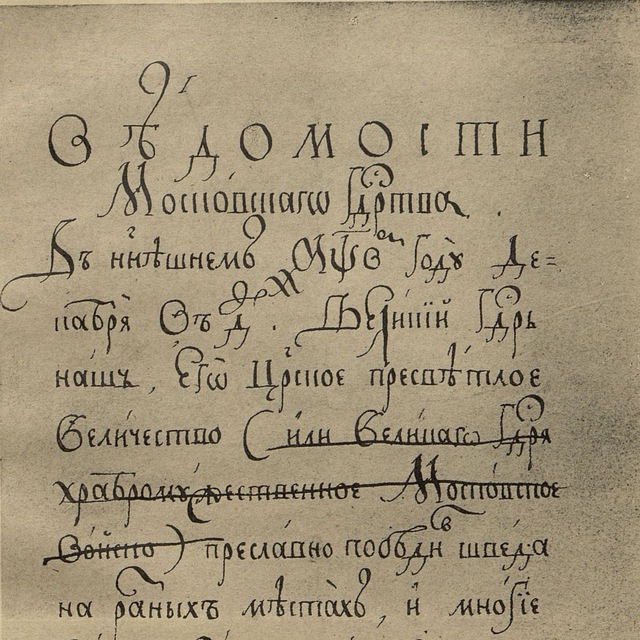 ВѢДОМОСТИ
Московскагѡ Гдрⷭ҇тва
Въ ннѣшнемъ ҂АѰВ ⷢ҇ом Годꙋ̀ Де=
кабрѧ̀ Въ д҃. Великїй Гдⷭ҇рь
нашъ, Егѡ̀ Црⷭ҇кое пресвѣтлое
Величество (или Великагѡ Гдⷭ҇рѧ
храбромꙋжественное Московское
Войско) преславно побѣди шведа
на ра́зныхъ мѣстахъ, и многїе